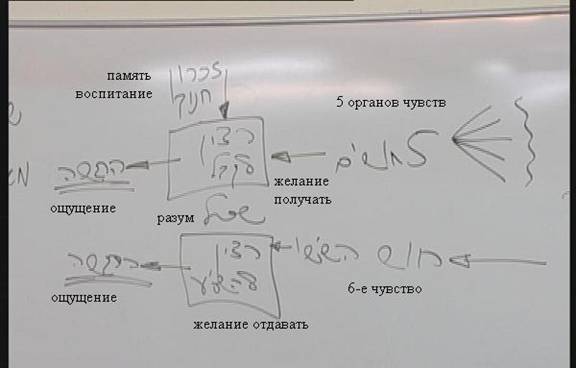 память
воспитание
זכרון
חנוך
5 органов чувств
הרצון
לקבל
5 חושים
הרגשה
желание
получать
ощущение
разум
שכל
הרצון
להשפיע
חוש הששי
הרגשה
6-е чувство
ощущение
желание отдавать